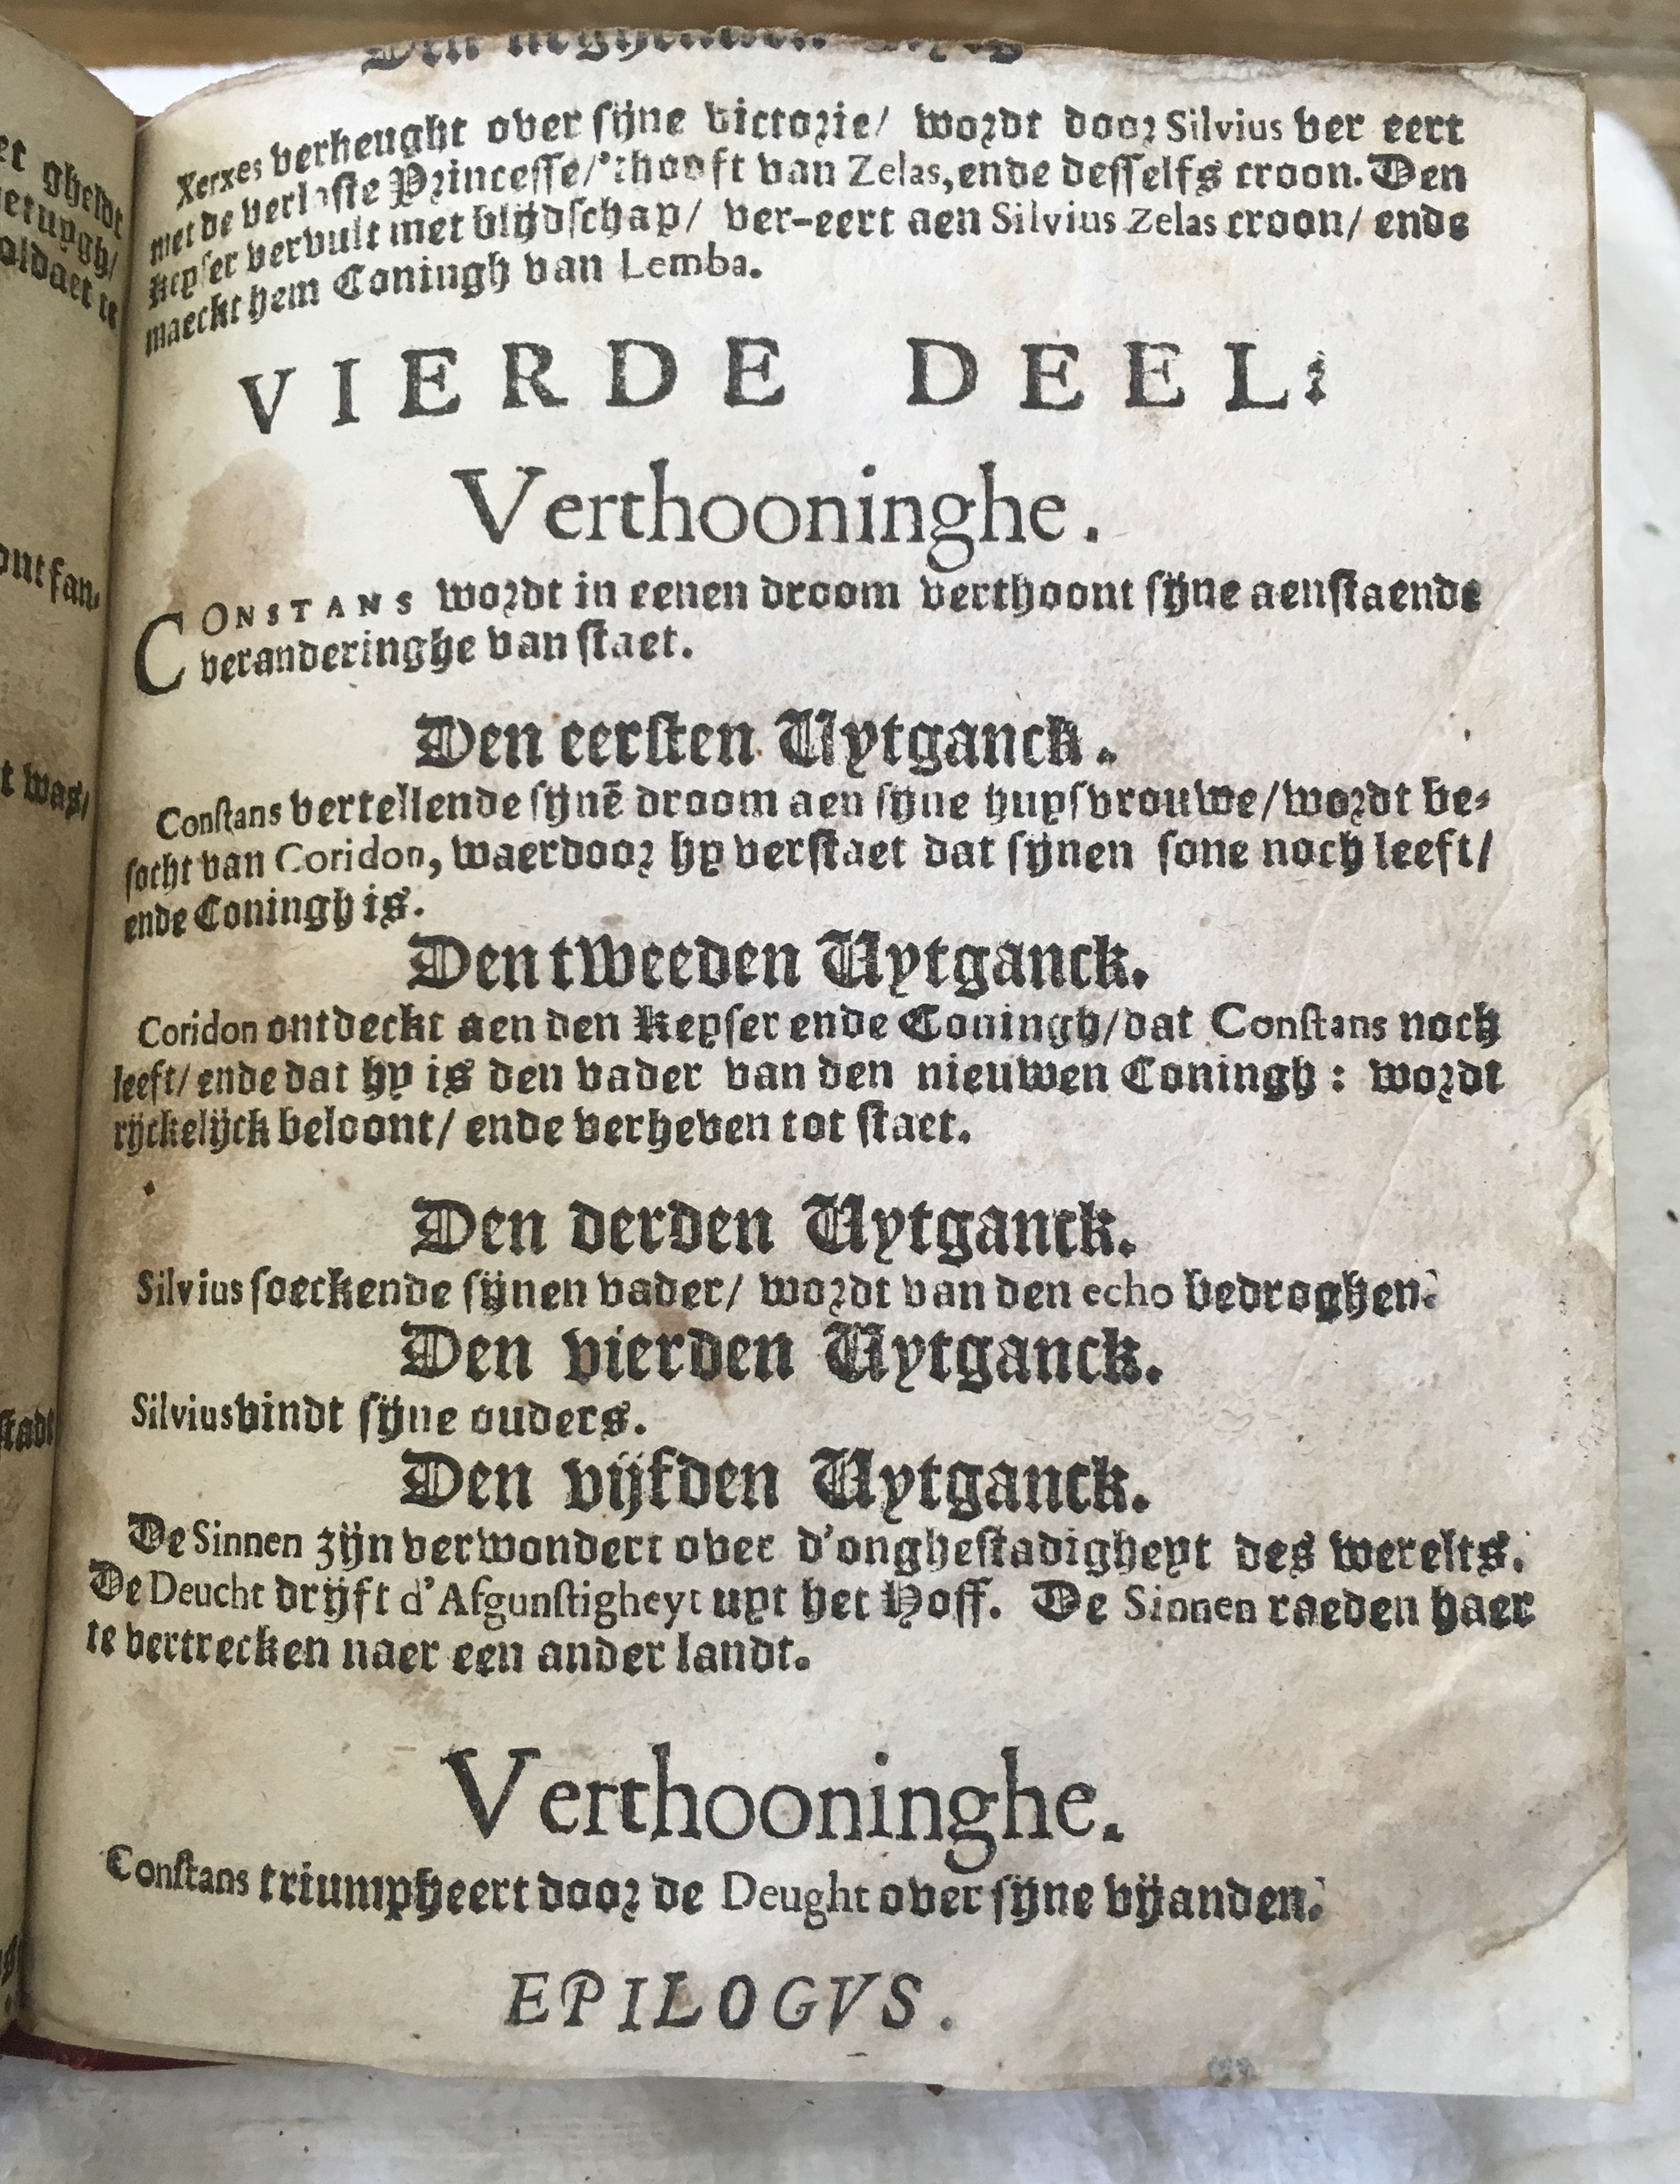 Den neghensten Uytg
Xerxes verheught over sijne victorie/ wordt door Silvius ver eert
met de verloste Princesse/'t hooft van Zelas, ende desselfs croon. Den
Keyser vervult met blijdschap/ ver-eert aen Silvius Zelas croon/ ende
maeckt hem Coningh van Lemba.
VIERDE DEEL:
Verthooninghe.
CONSTANS wordt in eenen droom verthoont sijne aenstaende
veranderinghe van staet.
Den eersten Uytganck.
Constans vertellende sijnē droom aen sijne huysvrouwe/wordt be-
socht van Coridon, waerdoor hy verstaet dat sijnen sone noch leeft/
ende Coningh is.
Den tweeden Uytganck.
Coridon ontdeckt aen den Keyser ende Coningh/dat Constans noch
leeft/ ende dat hy is den vader van den nieuwen Coningh : wordt
rijckelijck beloont/ ende verheven tot staet.
Den derden Uytganck.
Silvius soeckende sijnen vader/ wordt van den echo bedroghen.
Den vierden Uytganck.
Silvius vindt sijne ouders.
Den vijfden Uytganck.
De Sinnen zijn verwondert over d'onghestadigheyt des werelts.
De Deucht drijft d'Afgunstigheyt uyt het Hoff. De Sinnen raeden haer
te vertrecken naer een ander landt.
Verthooninghe.
Constans triumpheert door de Deught over sijne vijanden.
EPILOGVS.